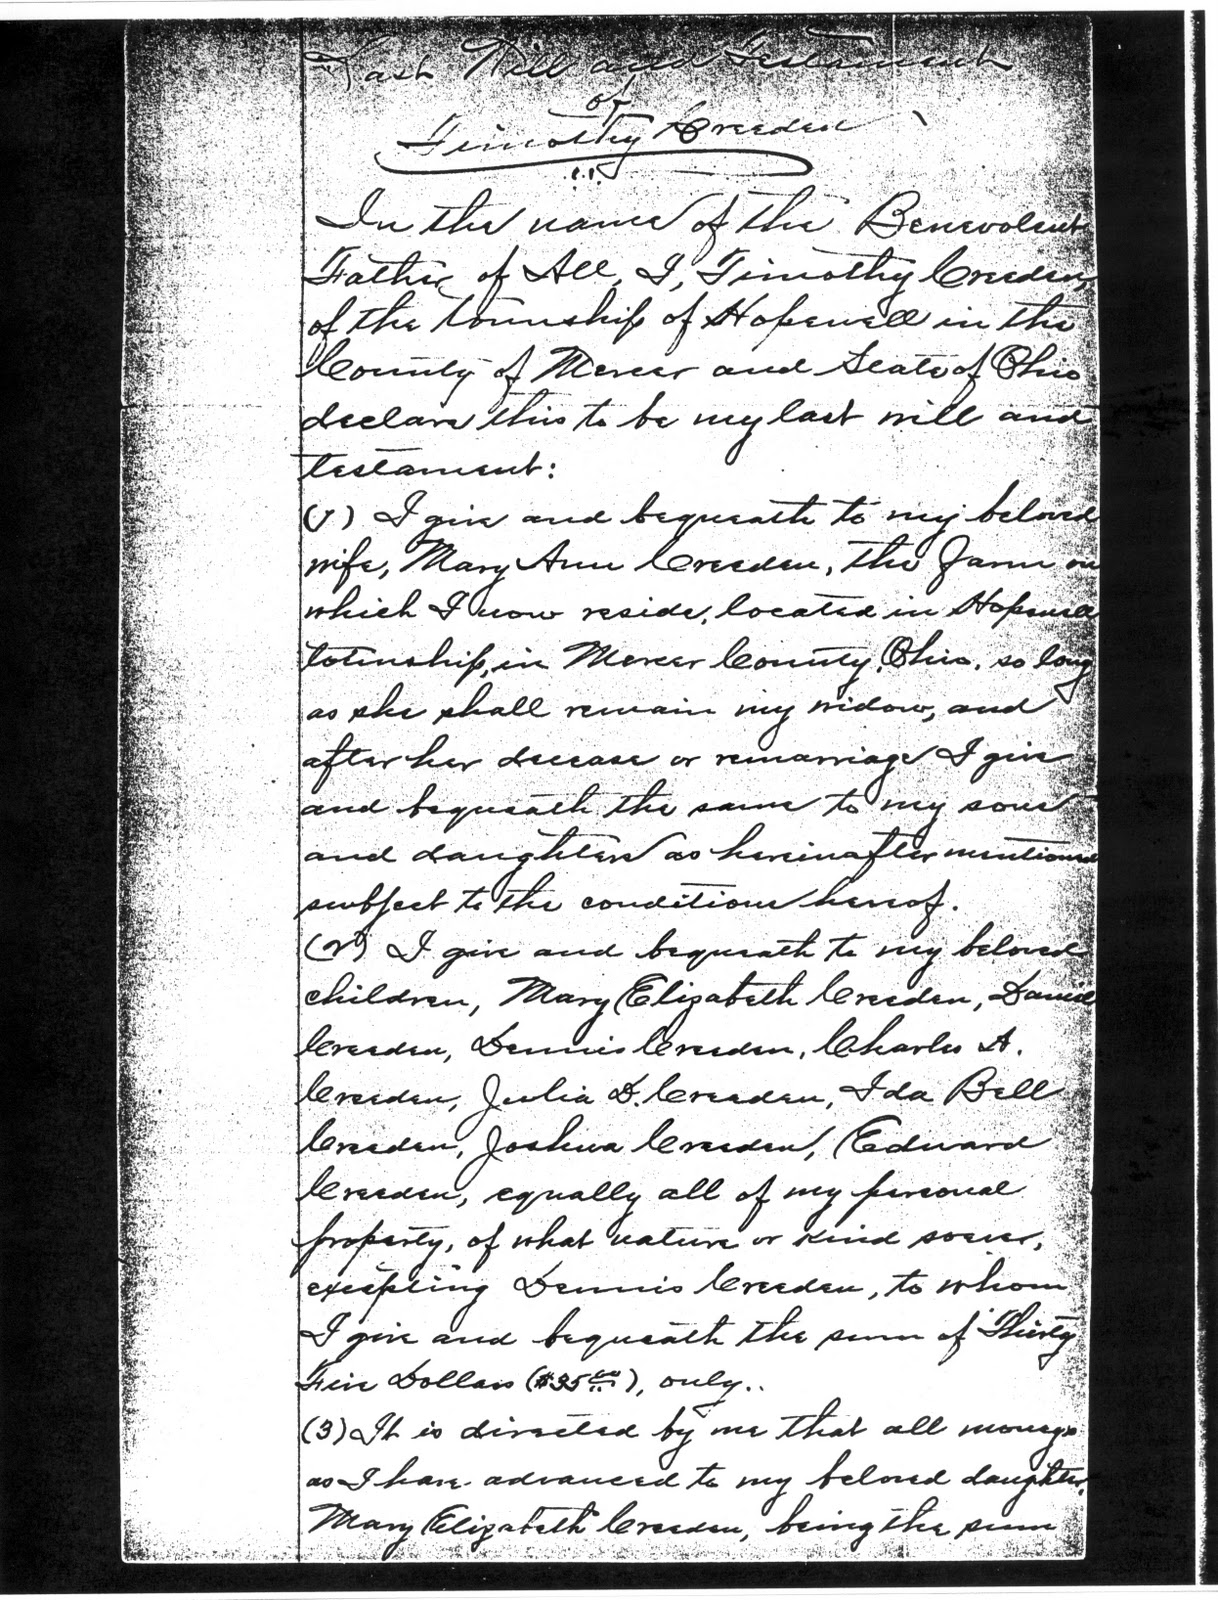 Last Will and Testament
of
Timothy Creeden
In the name of the Benevolent
Father of All, I, Timothy Creeden,
of the township of Hopewell in the
County of Mercer and State of Ohio
declare this to be my last will and
testament:
(1) I give and bequeath to my beloved
wife, Mary Ann Creeden, the farm on
which I now reside, located in Hopewell
township, in Mercer County, Ohio, so long
as she shall remain my widow, and
after her decease or remarriage I give
and bequeath the same to my sons
and daughters as hereinafter mentioned
subject to the conditions hereof.
(2) I give and bequeath to my beloved
children, Mary Elizabeth Creeden, Daniel
Creeden, Dennis Creeden, Charles A.
Creeden, Julia D. Creeden, Ida Bell
Creeden, Joshua Creeden, Edward
Creeden, equally all of my personal
property, of what nature or kind soever,
excepting Dennis Creeden, to whom
I give and bequeath the sum of Thirty
Five Dollars ($35.00), only..
(3) It is directed by me that all moneys
as I have advanced to my beloved daughter,
Mary Elizabeth Creeden, being the sum